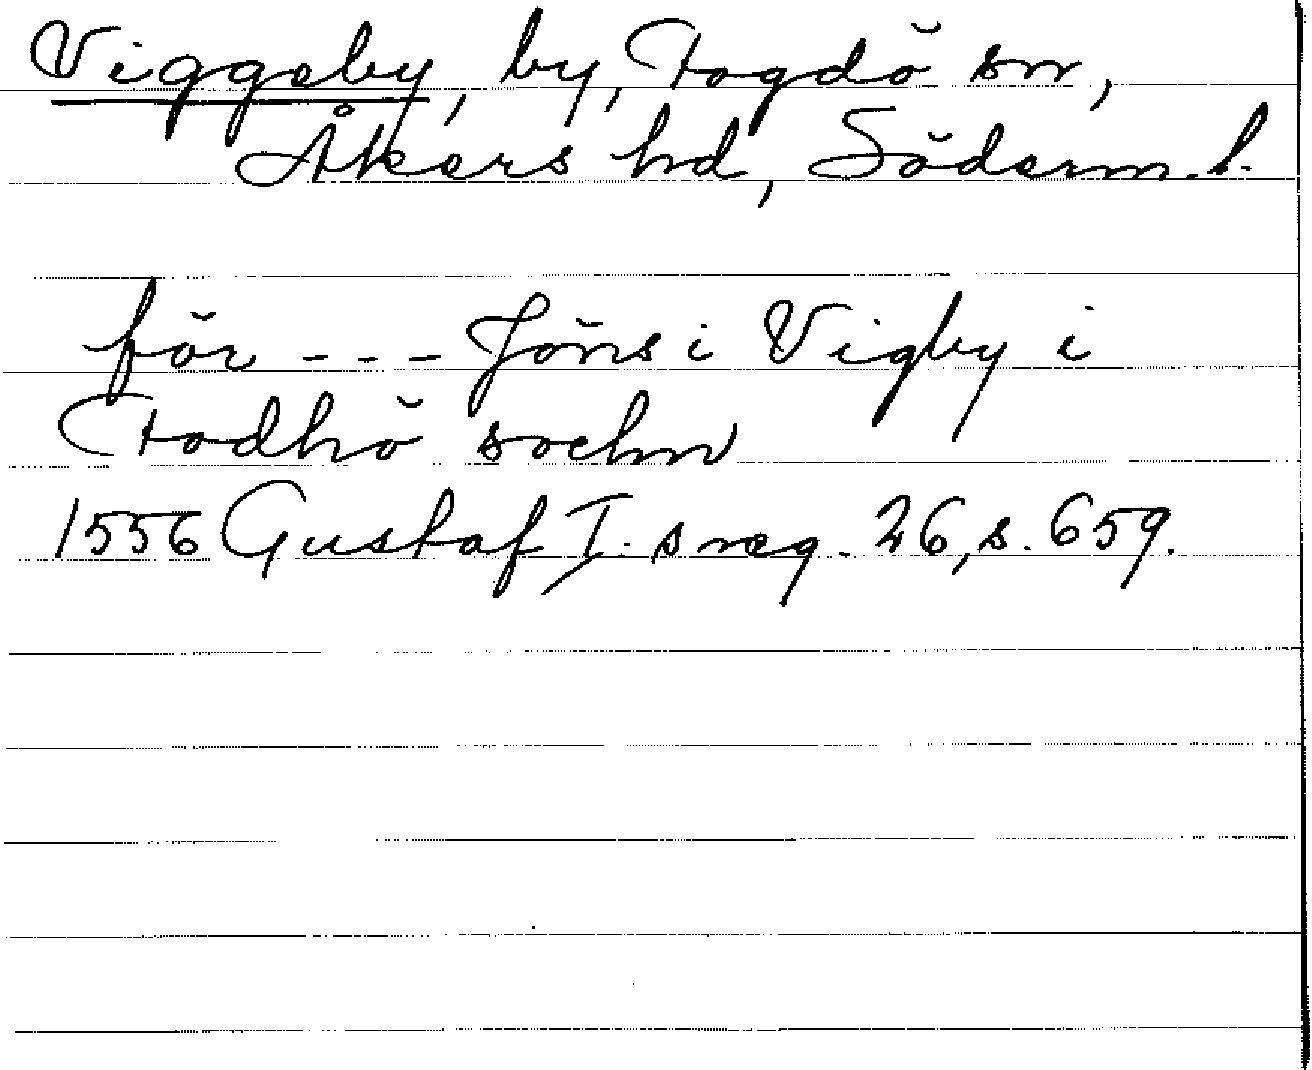 Viggeby, by, Fogdö sn,
Åkers hd, Söderm. l.
för --- Jöns i Vigby i
Fodhö sochn
1556 Gustaf I. s reg. 26, s. 659.